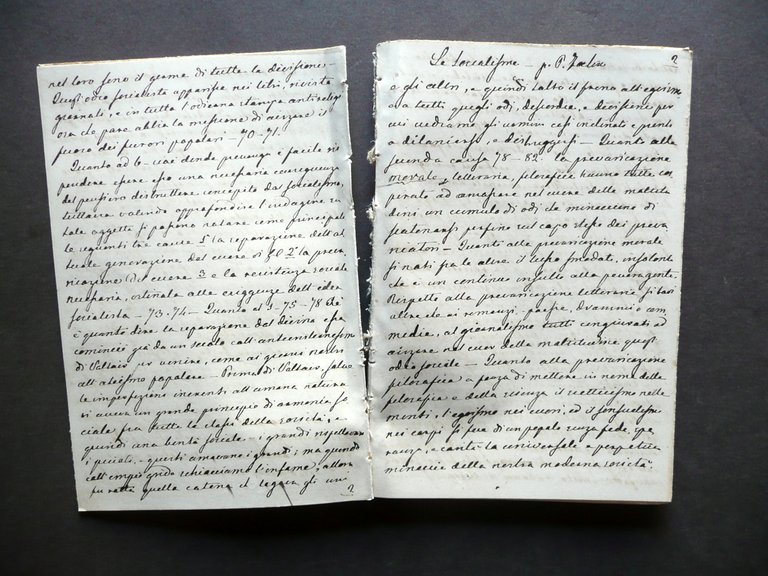 nel loro seno il germe di tutte le divisioni -
Quest'odio socialista apparisce nei libri, riviste
giornali, e in tutta l'odierna stampa antireligi
osa che pare abbia la missione di aizzare il
fuoco dei furori popolari - 70-71.
Quanto ad 6- onde provenga è facile ris
pondere essere esso una necessaria conseguenza
del pensiero distruttore concepito dal socialismo,
tuttavia volendo approfondire l'indagine su
tale oggetto si possono notare come principali
le seguenti tre cause 1ª la separazione dell'at
tuale generazione dal cuore di 2ª la preva
ricazione del cuore 3 e la resistenza sociale
necessaria, ordinata alle esigenze dell'idea
socialista - 73-74 - Quanto al 75-78 che
è quanto dire la separazione dal divino essa
cominciò già da un secolo coll'anticristianesimo
di Voltaire per venire, come ai giorni nostri
all'ateismo popolare - Prima di Voltaire, salve
le imperfezioni inerenti all'umana natura
vi aveva un grande principio di armonia so
ciale fra tutte le classi della società, e
quindi una bontà sociale - i grandi rispettavano
i piccoli - questi amavano i grandi; ma quando
coll'empio grido schiacciamo l'infame, allora
fu rotta quella catena che legava gli uni
2
Le Socialisme - p. P. Felix
2
a gli altri, e quindi tolto il freno all'egoismo
e a tutti quegli odj, discordie, e divisioni per
cui vediamo gli uomini così inclinati e pronti
a dilaniarsi, e distruggersi - Quanto alla
seconda causa 78-82. la prevaricazione
morale, letteraria, filosofica hanno tutte cos
pirato ad ammassare nel cuore delle moltitu
dini un cumulo di odj che minacciano di
scatenarsi perfino sul capo stesso dei preva
ricatori - Quanto alla prevaricazione morale
si noti fra le altre il lusso smodato, insolente
che è un continuo insulto alla povera gente.
Rispetto alla prevaricazione letteraria si badi
oltre che ai romanzi, poesie, drammi e com
medie, al giornalismo tutti congiurati ad
aizzare nel cuor della moltitudine quest'
odio sociale - Quanto alla prevaricazione
filosofica a forza di mettere in nome della
filosofia e della scienza il scetticismo nelle
menti, l'egoismo nei cuori, ed il sensualismo
nei corpi si fece di un popolo senza fede, spe
ranza, e carità la universale e perpetua
minaccia della nostra moderna società.